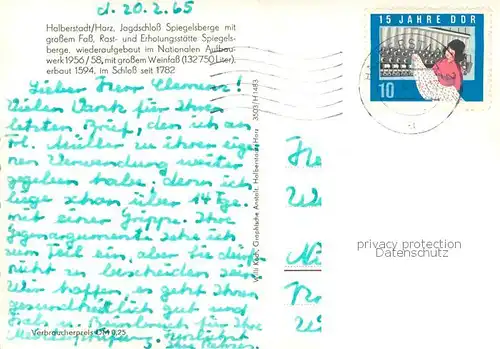 d. 20.2.65
Halberstadt/Harz, Jagdschloß Spiegelsberge mit
großem Faß, Rast- und Erholungsstätte Spiegels-
berge, wiederaufgebaut im Nationalen Aufbau-
werk 1956/58, mit großem Weinfaß (132 750 Liter),
erbaut 1594, im Schloß seit 1782
Lieber Herr Clemens!
Vielen Dank für Ihren
letzten Brief, den ich an
Frl. Müller zu ihrer eige-
nen Verwendung weiter
gegeben habe, denn ich
liege schon über 14 Tge.
mit einer Grippe. Ihre
Gegenargumente sehe ich
zum Teil ein, aber Sie dürfen
nicht zu bescheiden sein.
Wir hoffen, es geht Ihnen
gesundheitlich gut und
Hals u. Beinbruch für Ihre
Verbraucherpreis DM 0,25
Willi Koch, Graphische Anstalt, Halberstadt/Harz 3503/H 1483
15 JAHRE DDR
10
privacy protection
Datenschutz